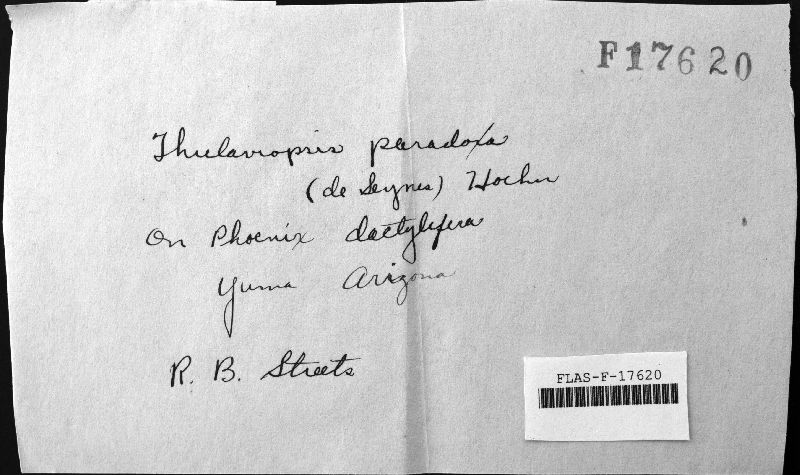 F17620
Thielaviopsis paradoxa
(de Seynes) Hoehn
On Phoenix dactylifera
Yuma Arizona
R. B. Streets
FLAS-F-17620